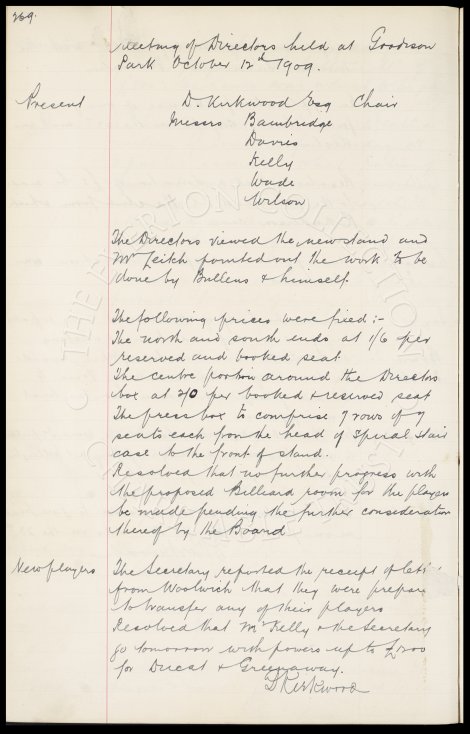 269.
Meeting of Directors held at Goodison
Park October 12th 1909.
Present
D. Kirkwood Esq Chair
Messrs Bambridge
Davies
Kelly
Wade
Wilson
The Directors viewed the new stand and
Mr Leitch pointed out the work to be
done by Bullens & himself.
The following prices were fixed :-
The north and south ends at 1/6 per
reserved and booked seat
The centre portion around the Directors
box at 2/0 per booked & reserved seat
The press box to comprise 7 rows of 7
seats each from the head of Spiral Stair
case to the front of stand.
Resolved that no further progress with
the proposed Billiard room for the players
be made pending the further consideration
thereof by the Board
New players
The Secretary reported the receipt of
from Woolwich that they were prepare
to transfer any of their players
Resolved that Mr Kelly & the Secretary
go tomorrow with powers up to
for Ducat & Greenaway.
D Kirkwood
THE EVERTON COLLECTION